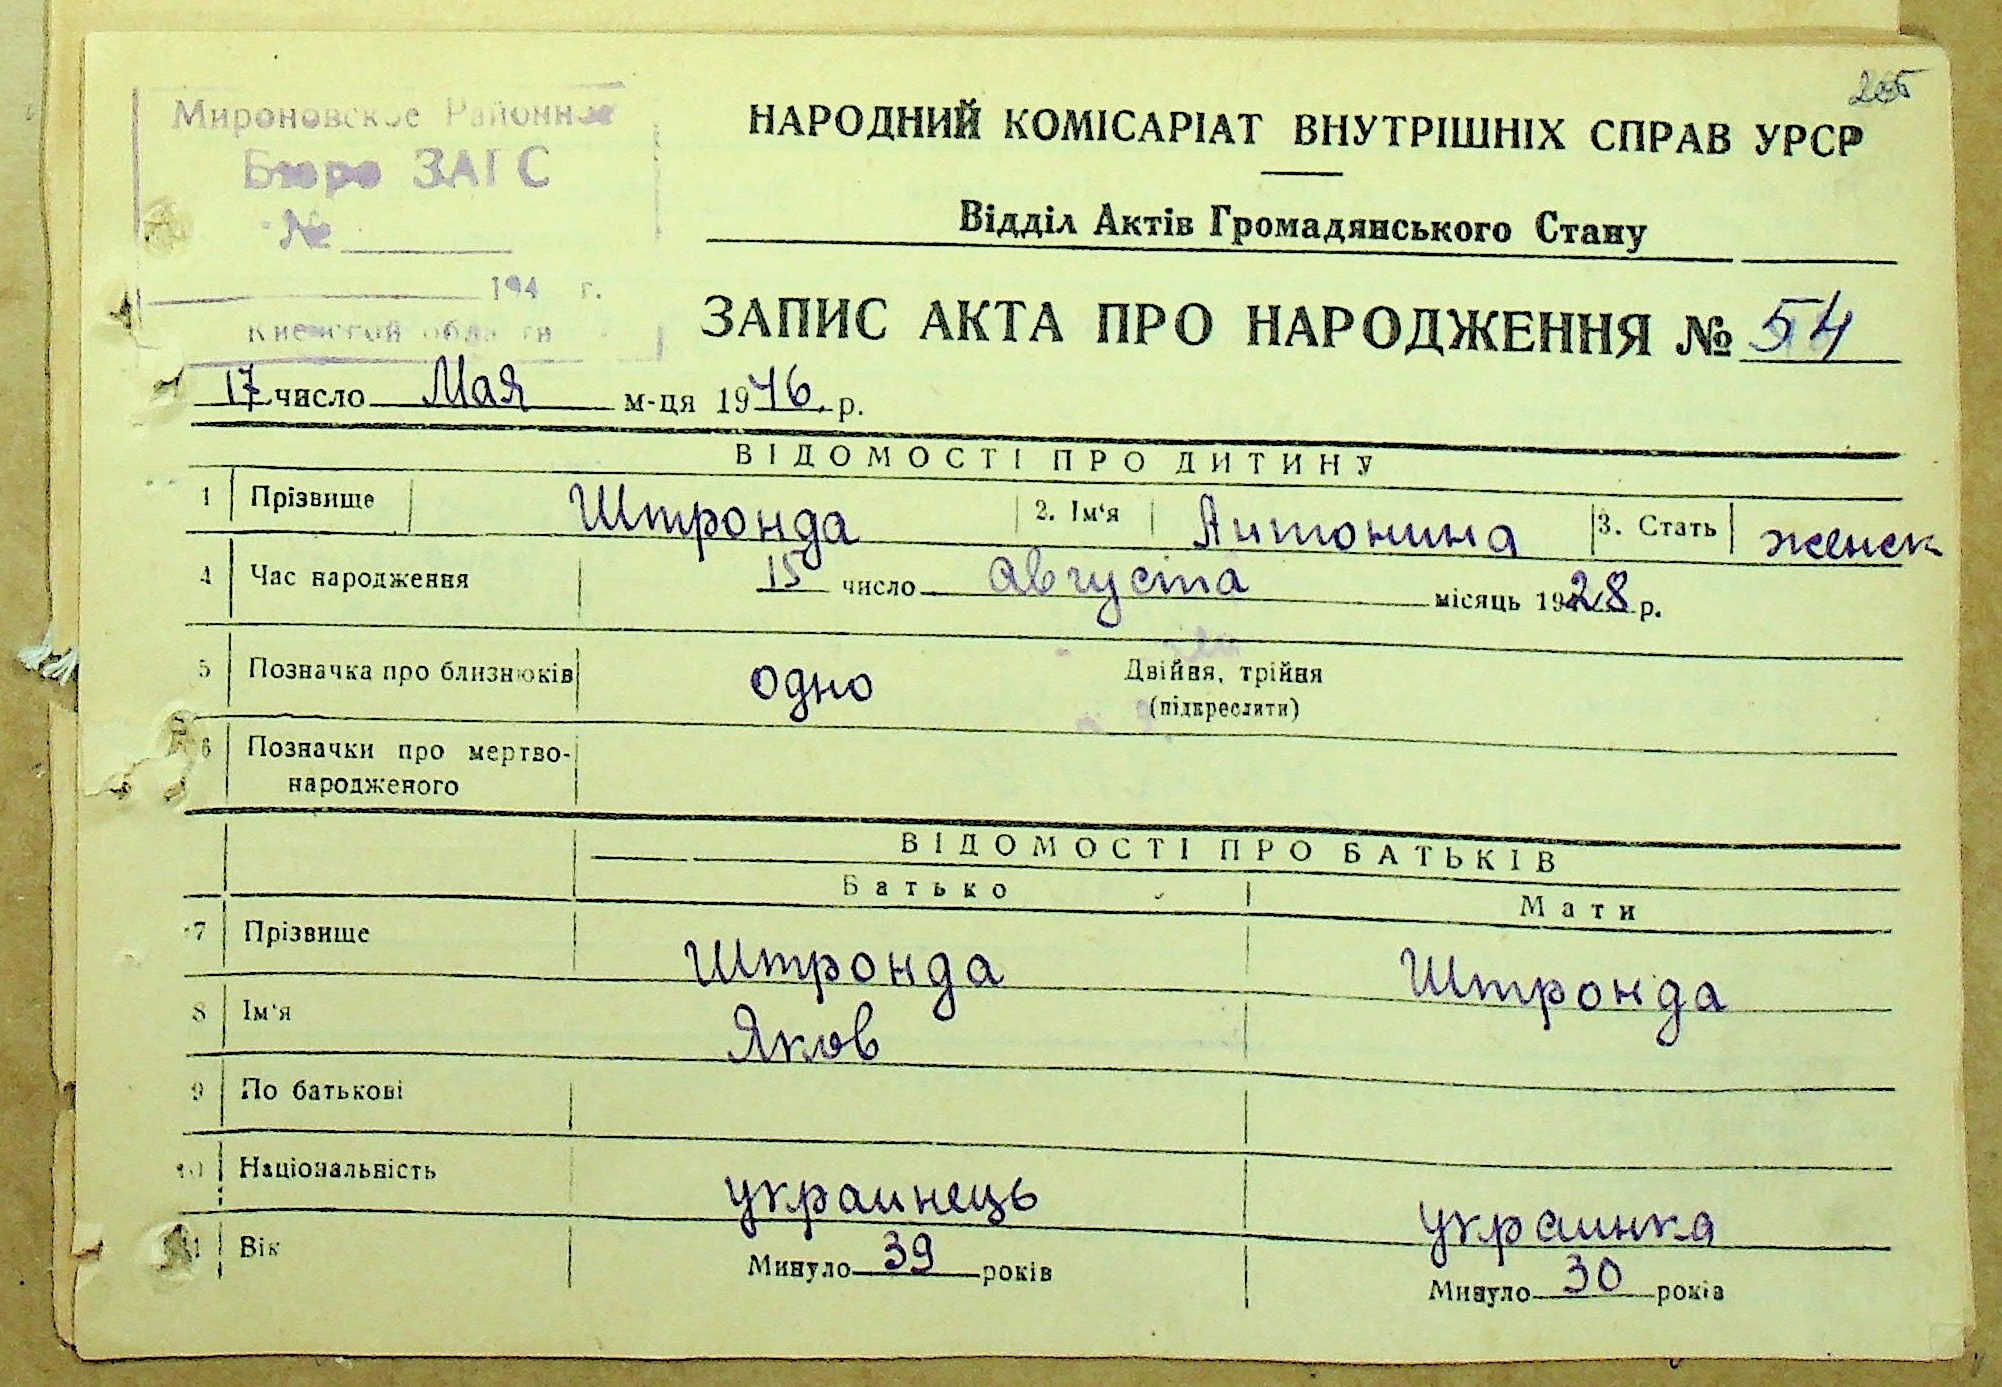 265
Мироновское Районное
Бюро ЗАГС
№
194 г.
Киевской области
НАРОДНИЙ КОМІСАРІАТ ВНУТРІШНІХ СПРАВ УРСР
Відділ Актів Громадянського Стану
ЗАПИС АКТА ПРО НАРОДЖЕННЯ № 54
17 число Мая м-ця 1946. р.
ВІДОМОСТІ ПРО ДИТИНУ
1 Прізвище Штронда 2. Ім'я Антонина 3. Стать женск
4 Час народження 15 число августа місяць 1928 р.
5 Позначка про близнюків одно Двійня, трійня
(підкреслити)
6 Позначки про мертво-
народженого
ВІДОМОСТІ ПРО БАТЬКІВ
Батько Мати
7 Прізвище Штронда Штронда
8 Ім'я Яков
9 По батькові
10 Національність украинець украинка
11 Вік Минуло 39 років Минуло 30 років